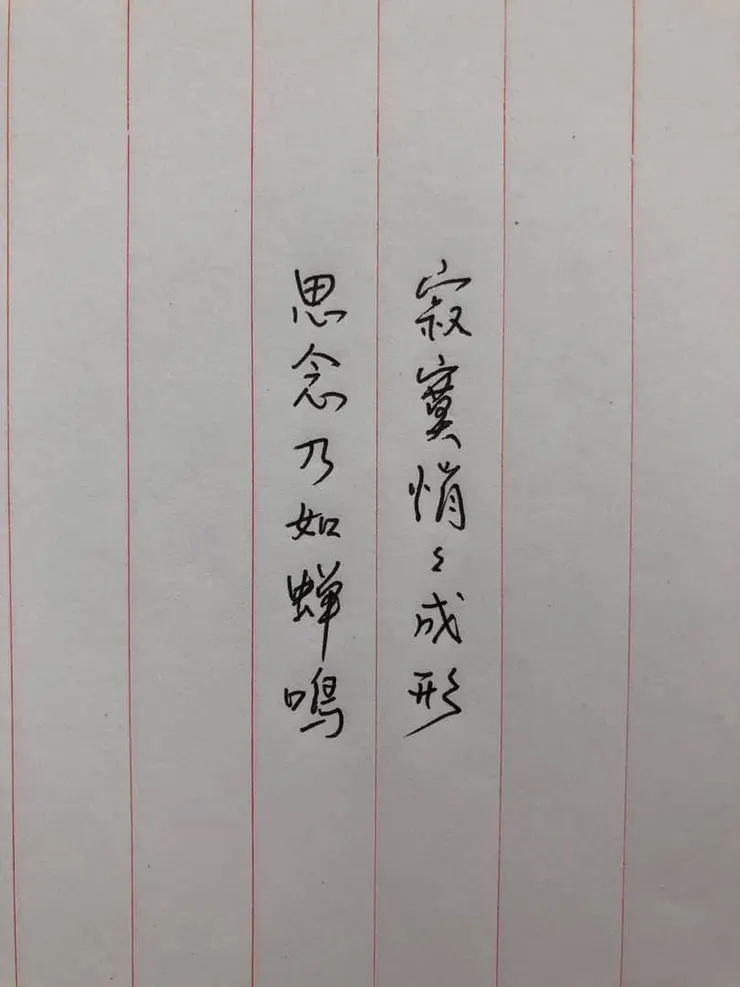 寂寞悄々成形
思念乃如蝉鸣